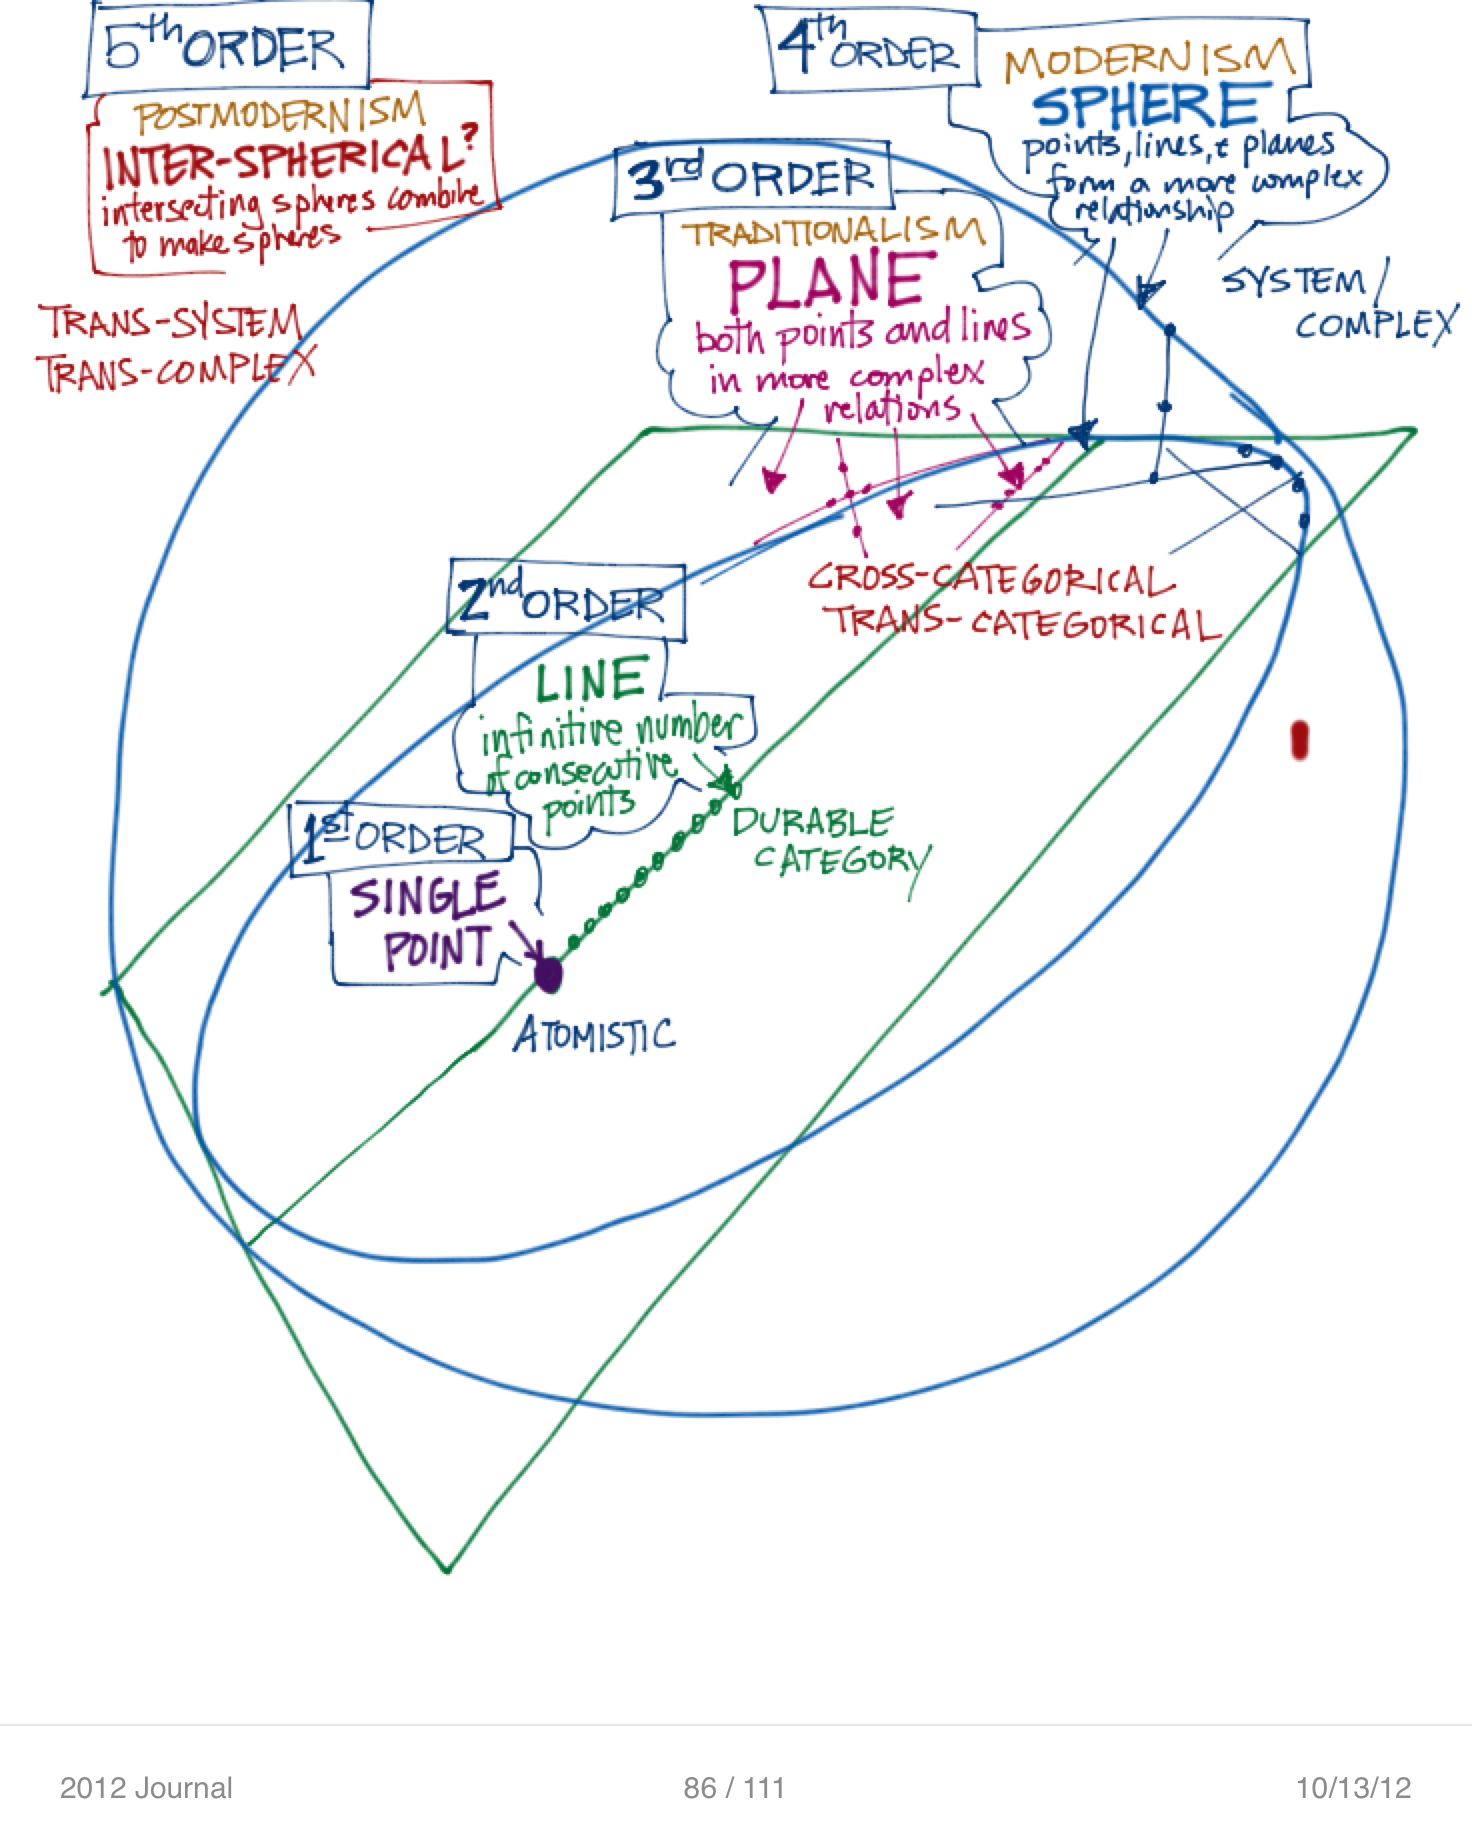 5th ORDER
POSTMODERNISM
INTER-SPHERICAL?
intersecting spheres combine
to make spheres
TRANS-SYSTEM
TRANS-COMPLEX
4th ORDER
MODERNISM
SPHERE
points, lines, & planes
form a more complex
relationship
SYSTEM/
COMPLEX
3rd ORDER
TRADITIONALISM
PLANE
both points and lines
in more complex
relations
CROSS-CATEGORICAL
TRANS-CATEGORICAL
2nd ORDER
LINE
infinitive number
of consecutive
points
DURABLE
CATEGORY
1st ORDER
SINGLE
POINT
ATOMISTIC
2012 Journal
86 / 111
10/13/12